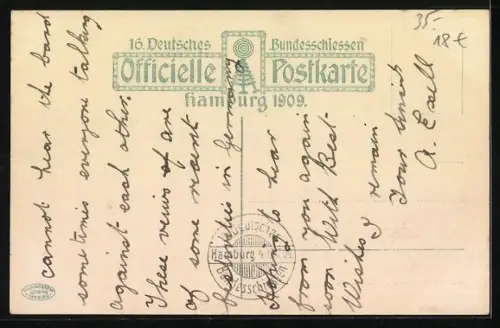 16. Deutsches Bundesschiessen
Officielle Postkarte
Hamburg 1909.
35,-
18 €
cannot hear the band
sometimes everyone talking
against each other.
These views are
of some recent
festivities in Germany
Hoping to hear
from you again
soon With Best-
Wishes I remain
Your friend
Hamburg